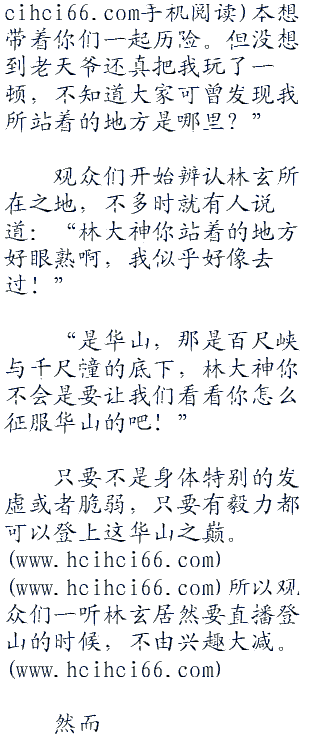 cihci66.com手机阅读)本想
带着你们一起历险。但没想
到老天爷还真把我玩了一
顿，不知道大家可曾发现我
所站着的地方是哪里？”
观众们开始辨认林玄所
在之地，不多时就有人说
道：“林大神你站着的地方
好眼熟啊，我似乎好像去
过！”
“是华山，那是百尺峡
与千尺㠉的底下，林大神你
不会是要让我们看看你怎么
征服华山的吧！”
只要不是身体特别的发
虚或者脆弱，只要有毅力都
可以登上这华山之巅。
(www.hcihci66.com)
(www.hcihci66.com)所以观
众们一听林玄居然要直播登
山的时候，不由兴趣大减。
(www.hcihci66.com)
然而